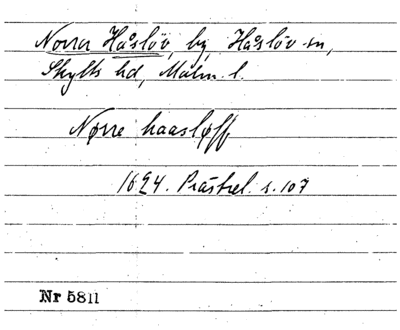 Norra Håslöv, by, Håslöv sn,
Skytts hd, Malm. l.
Nørre haasløff
1624. Prästrel. s. 107
Nr 5811